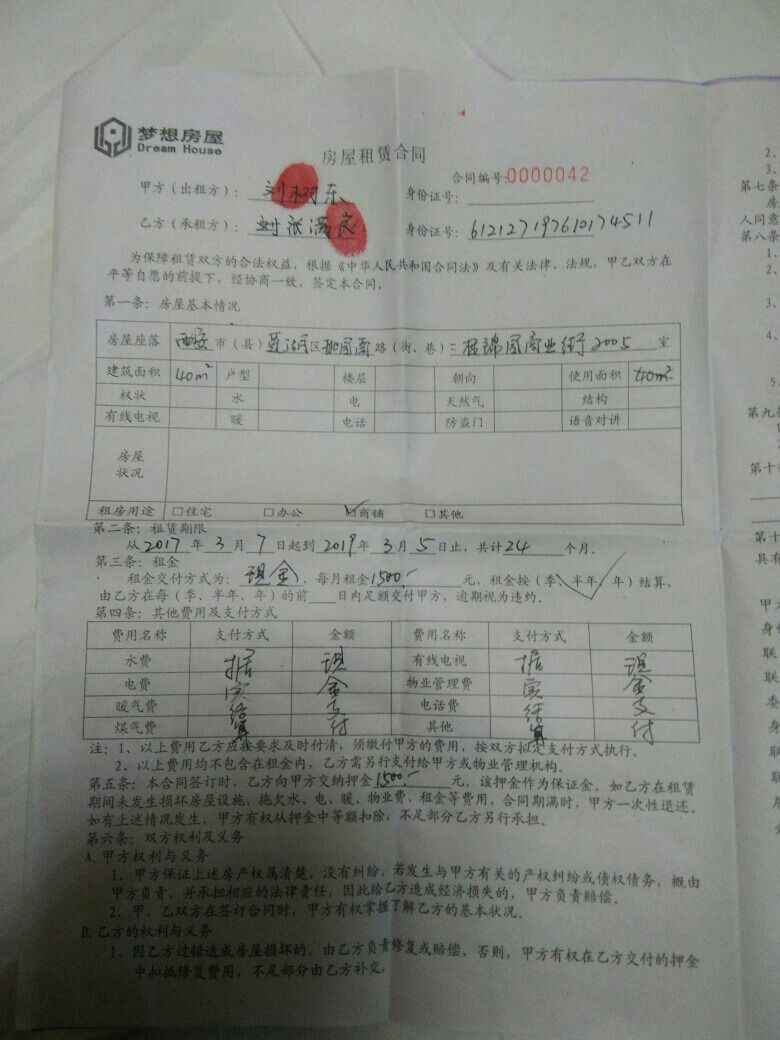 梦想房屋
Dream House
房屋租赁合同
合同编号:0000042
甲方（出租方）：刘树东 身份证号：
乙方（承租方）： 身份证号：612127197610174511
为保障租赁双方的合法权益，根据《中华人民共和国合同法》及有关法律、法规，甲乙双方在
平等自愿的前提下，经协商一致，签定本合同。
第一条：房屋基本情况
房屋座落 西安市（县） 区 路（街、巷） 商业街2005 室
建筑面积 40m² 户型 楼层 朝向 使用面积 40m²
权状 水 电 天然气 结构
有线电视 暖 电话 防盗门 语音对讲
房屋
状况
租房用途 □住宅 □办公 ☑商铺 □其他
第二条：租赁期限
从2017年3月7日起到2019年3月5日止，共计24个月。
第三条：租金
租金交付方式为：现金，每月租金1500元，租金按（季、半年、年）结算，
由乙方在每（季、半年、年）的前 日内足额交付甲方，逾期视为违约。
第四条：其他费用及支付方式
费用名称 支付方式 金额 费用名称 支付方式 金额
水费 据 现 有线电视 据 现
电费 实 金 物业管理费 实 金
暖气费 结 支 电话费 结 支
煤气费 算 付 其他 算 付
注：1、以上费用乙方应按要求及时付清，须缴付甲方的费用，按双方拟定支付方式执行。
2、以上费用均不包含在租金内，乙方需另行支付给甲方或物业管理机构。
第五条：本合同签订时，乙方向甲方交纳押金1500元。该押金作为保证金。如乙方在租赁
期间未发生损坏房屋设施，拖欠水、电、暖、物业费、租金等费用，合同期满时，甲方一次性退还。
如有上述情况发生，甲方有权从押金中等额扣除，不足部分乙方另行承担。
第六条：双方权利及义务
A. 甲方权利与义务
1、甲方保证上述房产权属清楚，没有纠纷。若发生与甲方有关的产权纠纷或债权债务，概由
甲方负责，并承担相应的法律责任，因此给乙方造成经济损失的，甲方负责赔偿。
2、甲、乙双方在签订合同时，甲方有权掌握了解乙方的基本状况。
B. 乙方的权利与义务
1、因乙方过错造成房屋损坏的，由乙方负责修复或赔偿，否则，甲方有权在乙方交付的押金
中扣抵修复费用，不足部分由乙方补交。
2、
3、
第七条
房
人同意
第八条
1、
2、
3、
4、
5、
第九条
第十
第十
具有
甲方
身份
联
联
委
身
联
联